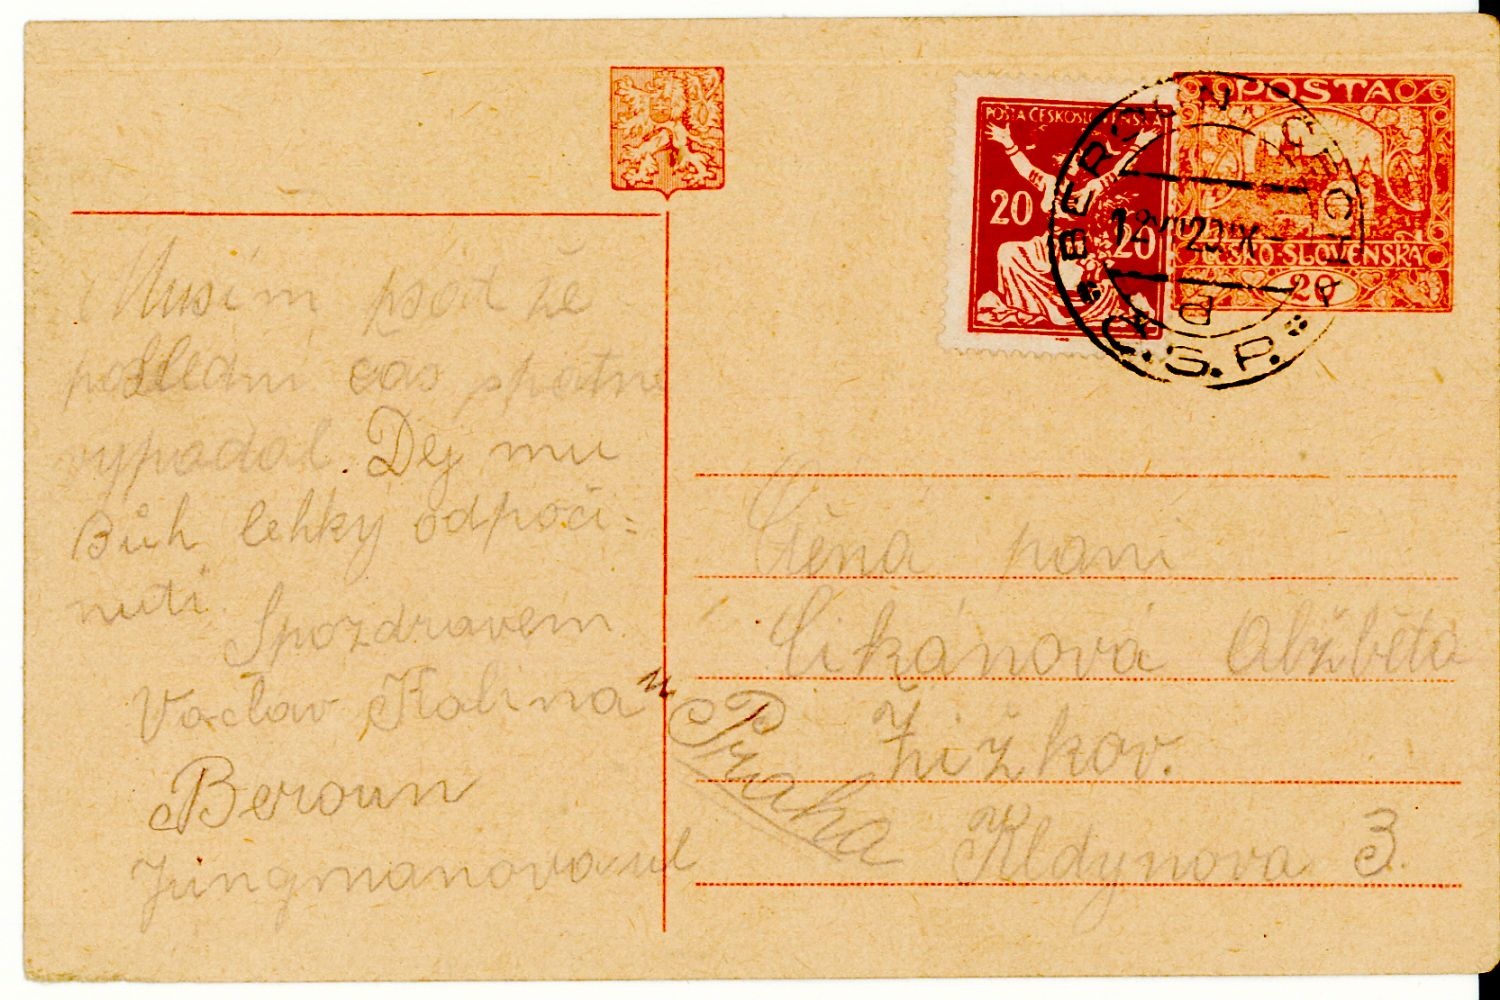 Musím psát že
poslední čas špatně
vypadal. Dej mu
Bůh lehký odpoči=
nutí.
Spozdravem
Vaclav Kalina
Beroun
Jungmanova ul
POŠTA ČESKOSLOVENSKÁ
20
20
POŠTA
ČESKO-SLOVENSKÁ
20
BEROUN
Č.S.P.
Ctěná paní
Cikánová Alžběta
u Prahа Žižkov.
Kldynova 3.